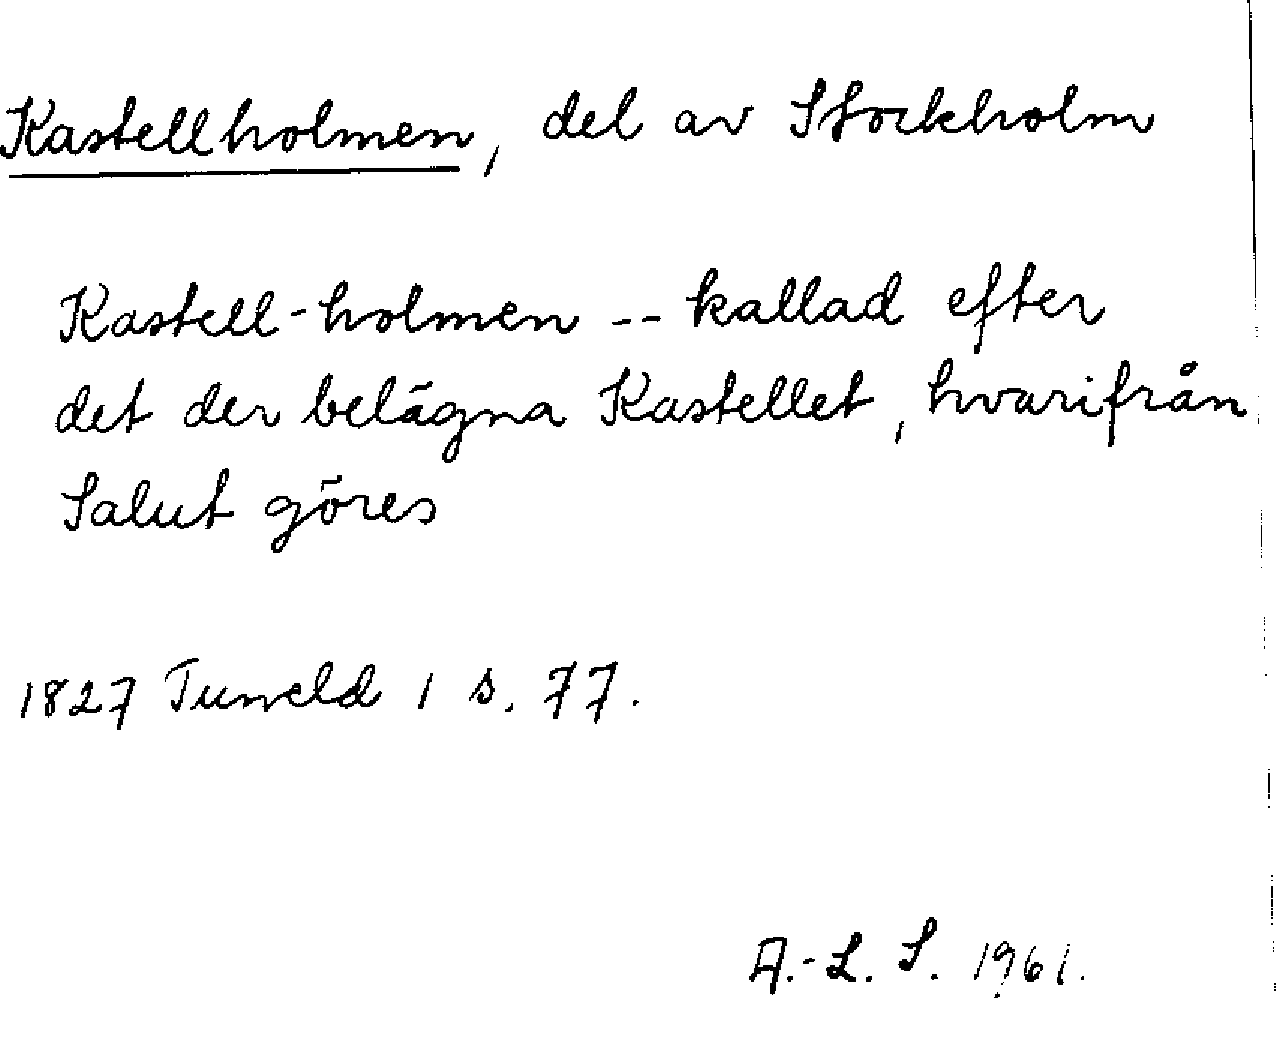 Kastellholmen, del av Stockholm
Kastell-holmen -- kallad efter
det der belägna Kastellet, hvarifrån
Salut göres
1827 Tuneld 1 s. 77.
A.-L. S. 1961.